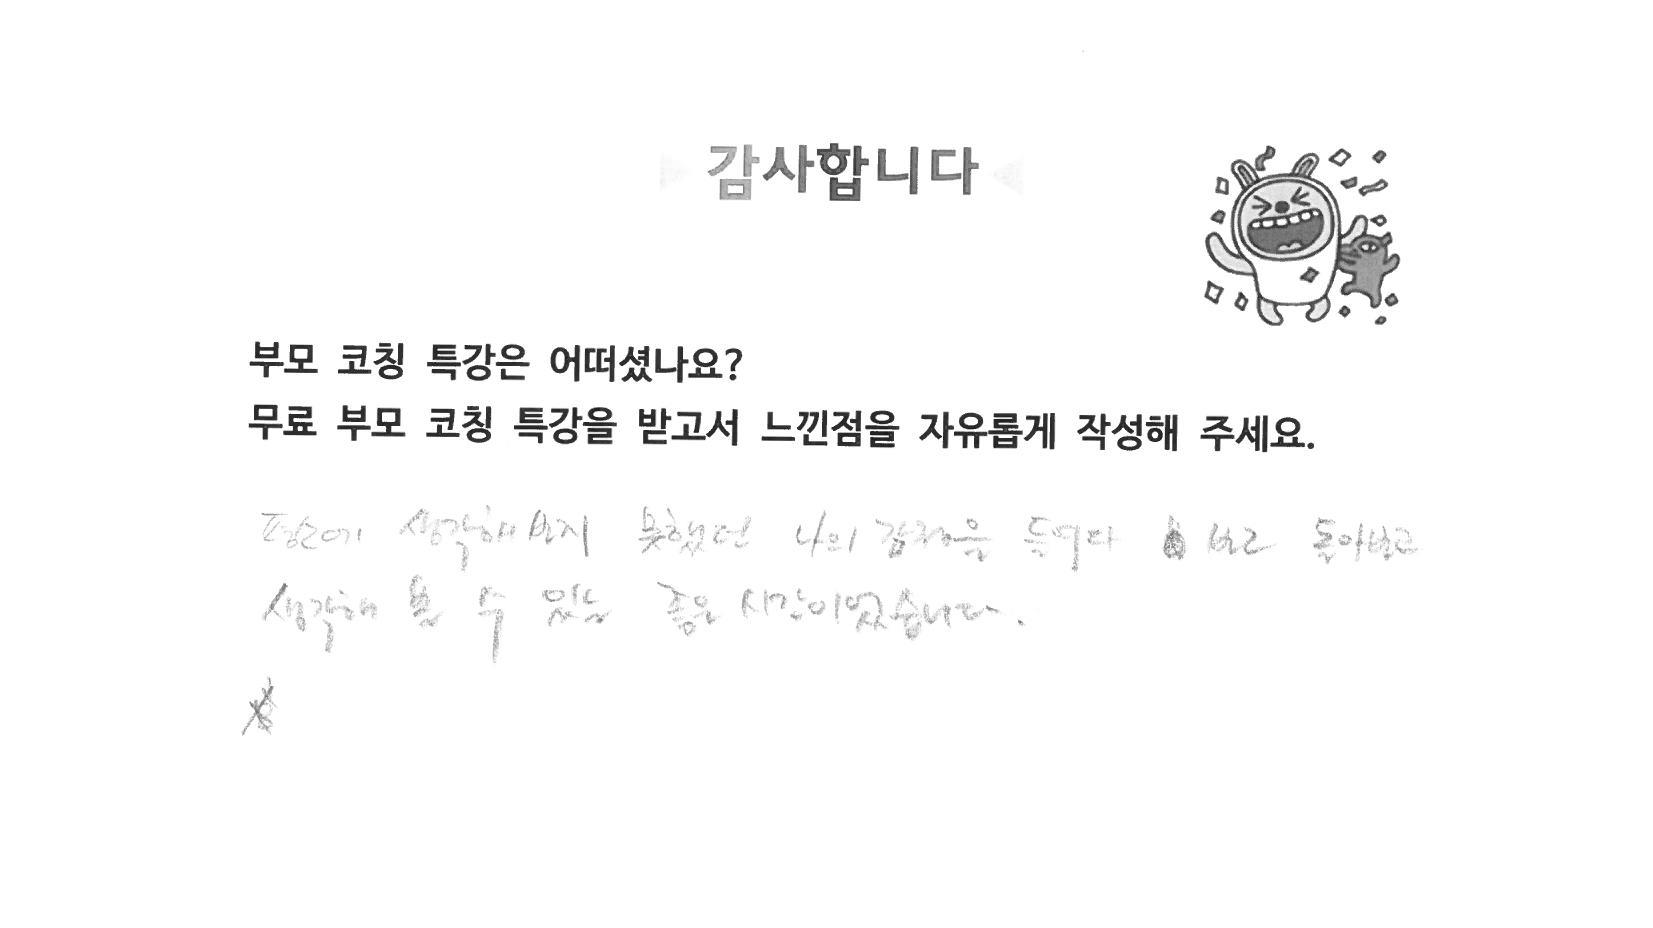 감사합니다
부모 코칭 특강은 어떠셨나요?
무료 부모 코칭 특강을 받고서 느낀점을 자유롭게 작성해 주세요.
평소에 생각해보지 못했던 나의 감정을 들여다 보고 돌아보고
생각해 볼 수 있는 좋은 시간이었습니다.